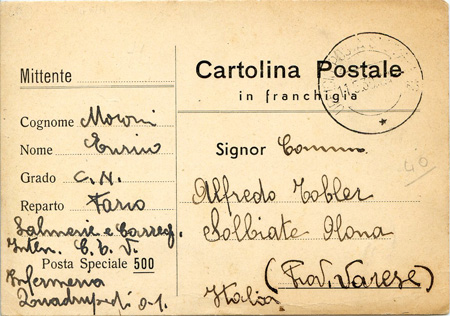 Mittente
Cognome Moroni
Nome Enrico
Grado C. N.
Reparto
Salmerie e Carreg.
Inten. C. T. V.
Posta Speciale 500
Infermeria
Quadrupedi
Cartolina Postale
in franchigia
Signor Comm
Alfredo Tobler
Solbiate Olona
(Prov. Varese)
Italia
40